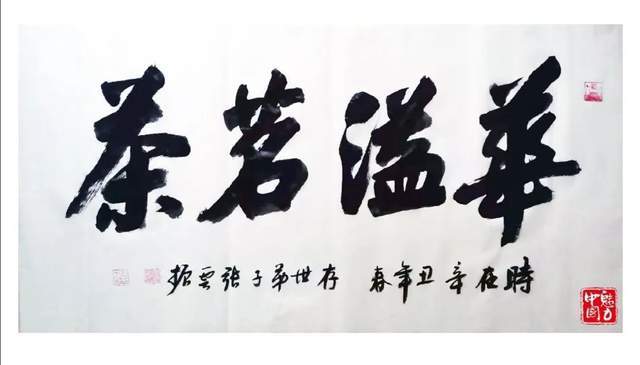 華溢茗茶
時在辛丑年春 存世弟子張雲振
魅力中国